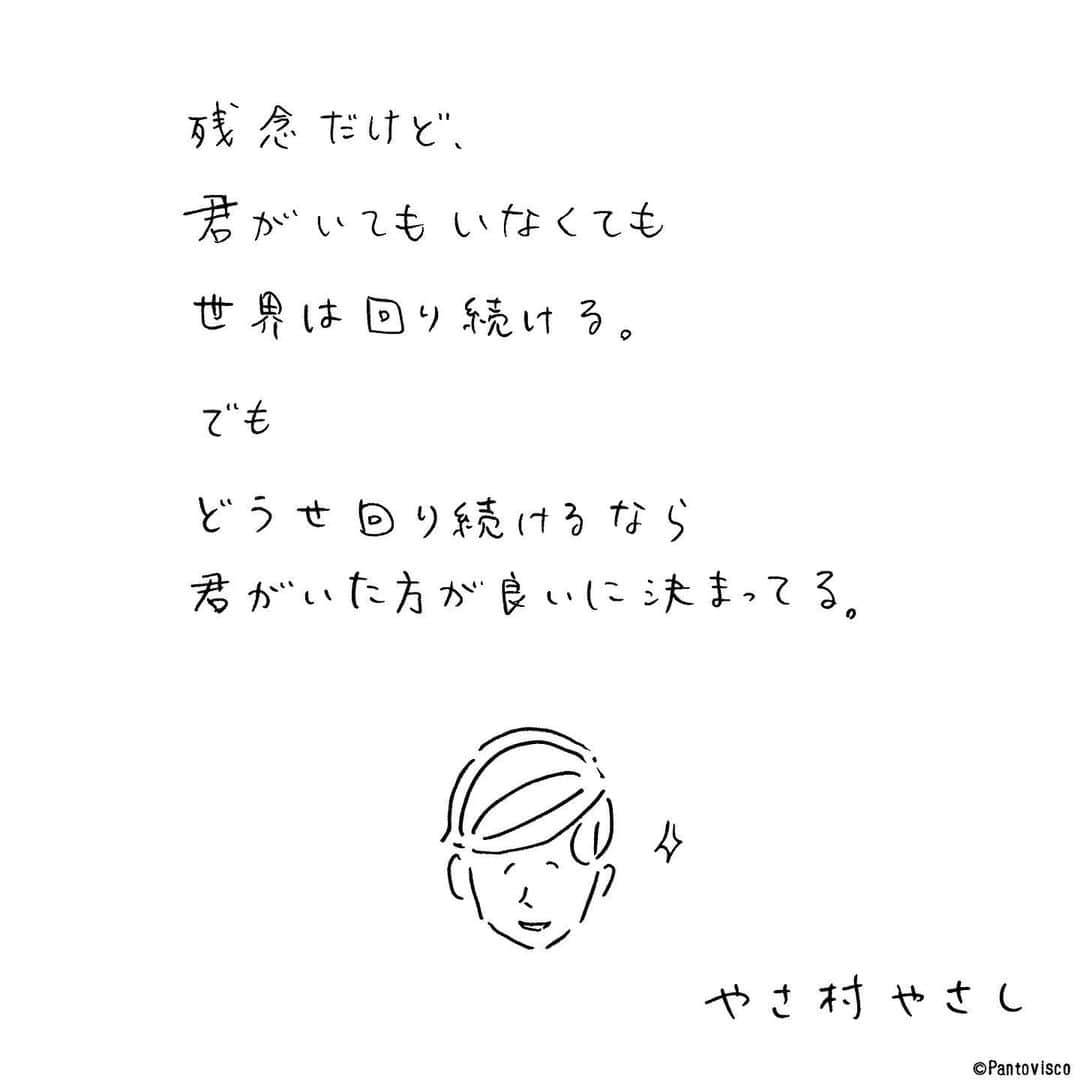 残念だけど、
君がいてもいなくても
世界は回り続ける。
でも
どうせ回り続けるなら
君がいた方が良いに決まってる。
やさ村やさし
©Pantovisco